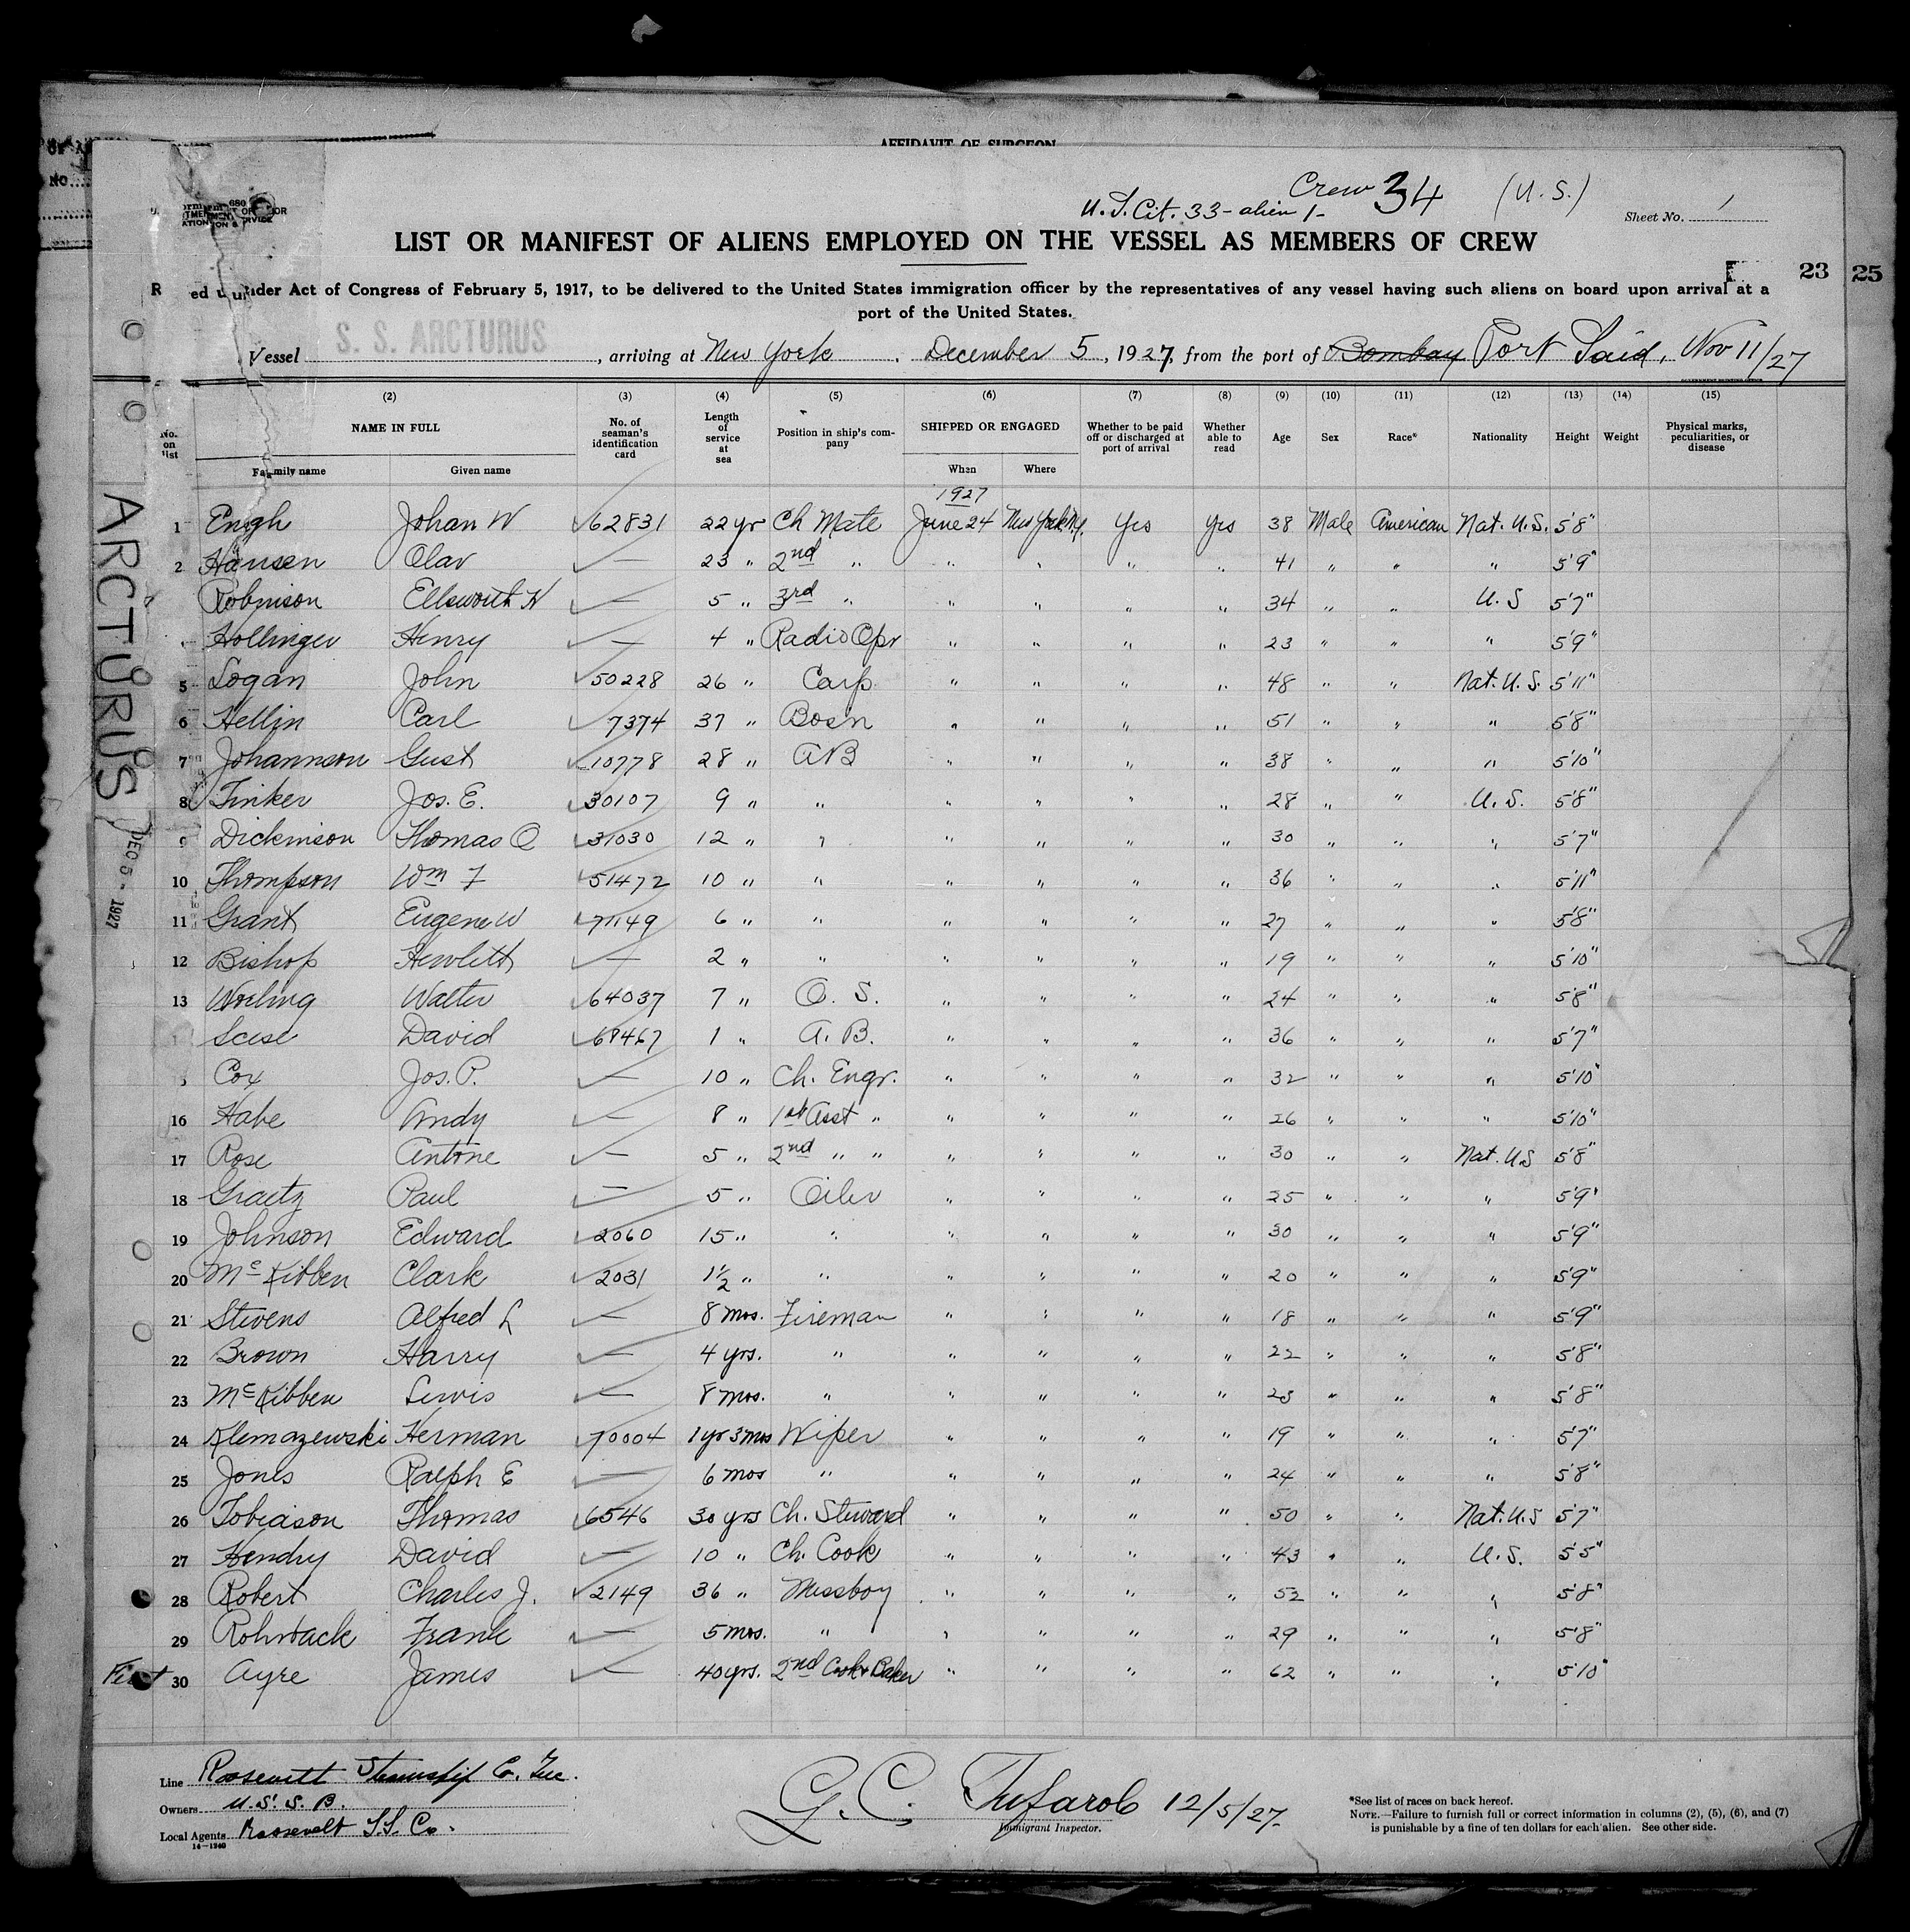 AFFIDAVIT OF SURGEON
Crew 34 (U.S.)
U.S. Cit. 33 - alien 1 -
Sheet No. 1
LIST OR MANIFEST OF ALIENS EMPLOYED ON THE VESSEL AS MEMBERS OF CREW
23 25
under Act of Congress of February 5, 1917, to be delivered to the United States immigration officer by the representatives of any vessel having such aliens on board upon arrival at a
port of the United States.
Vessel S. S. ARCTURUS, arriving at New York, December 5, 1927, from the port of Bombay Port Said, Nov 11/27
(2) (3) (4) (5) (6) (7) (8) (9) (10) (11) (12) (13) (14) (15)
No. on list NAME IN FULL No. of seaman's identification card Length of service at sea Position in ship's company SHIPPED OR ENGAGED Whether to be paid off or discharged at port of arrival Whether able to read Age Sex Race* Nationality Height Weight Physical marks, peculiarities, or disease
Family name Given name When Where
1927
1 Engh Johan W 62831 22 yr Ch Mate June 24 New York NY. Yes Yes 38 Male American Nat. U.S. 5'8"
2 Hansen Olav — 23 " 2nd " " " " " 41 " " " 5'9"
Robinson Ellsworth H — 5 " 3rd " " " " " 34 " " U.S 5'7"
Hollinger Henry — 4 " Radio Opr " " " " 23 " " " 5'9"
5 Logan John 50228 26 " Carp. " " " " 48 " " Nat. U.S. 5'11"
6 Hellin Carl 7374 37 " Bosn " " " " 51 " " " 5'8"
7 Johannson Gust 10778 28 " AB " " " " 38 " " " 5'10"
8 Tinker Jos. E. 30107 9 " " " " " " 28 " " U.S. 5'8"
9 Dickinson Thomas O 31030 12 " " " " " " 30 " " " 5'7"
10 Thompson Wm F 51472 10 " " " " " " 36 " " " 5'11"
11 Grant Eugene W 71149 6 " " " " " " 27 " " " 5'8"
12 Bishop Hewlett — 2 " " " " " " 19 " " " 5'10"
13 Worling Walter 64037 7 " O. S. " " " " 24 " " " 5'8"
Scese David 69467 1 " A. B. " " " " 36 " " " 5'7"
Cox Jos. P. — 10 " Ch. Engr. " " " " 32 " " " 5'10"
16 Habe Andy — 8 " 1st Asst " " " " " 26 " " " 5'10"
17 Rose Antone — 5 " 2nd " " " " " " 30 " " Nat. U.S 5'8"
18 Graetz Paul — 5 " Oiler " " " " 25 " " " 5'9"
19 Johnson Edward 2060 15 " " " " " " 30 " " " 5'9"
20 McKibben Clark 2031 1½ " " " " " " 20 " " " 5'9"
21 Stevens Alfred L — 8 mos. Fireman " " " " 18 " " " 5'9"
22 Brown Harry — 4 yrs. " " " " " 22 " " " 5'8"
23 McKibben Lewis — 8 mos. " " " " " 23 " " " 5'8"
24 Klemazewski Herman 70004 1 yr 3 mos Wiper " " " " 19 " " " 5'7"
25 Jones Ralph E — 6 mos " " " " " 24 " " " 5'8"
26 Tobiason Thomas 6546 30 yrs Ch. Steward " " " " 50 " " Nat. U.S 5'7"
27 Hendry David — 10 " Ch. Cook " " " " 43 " " U.S. 5'5"
28 Robert Charles J. 2149 36 " Messboy " " " " 52 " " " 5'8"
29 Rohrback Frank — 5 mos. " " " " " 29 " " " 5'8"
30 Ayre James — 40 yrs. 2nd Cook & Baker " " " " 62 " " " 5'10"
ARCTURUS
DEC 5 - 1927
Line Roosevelt Steamship Co. Inc.
Owners U.S.S.B.
Local Agents Roosevelt S.S. Co.
14-1240
G. C. Tufarolo 12/5/27
Immigrant Inspector.
*See list of races on back hereof.
NOTE.—Failure to furnish full or correct information in columns (2), (5), (6), and (7)
is punishable by a fine of ten dollars for each alien. See other side.